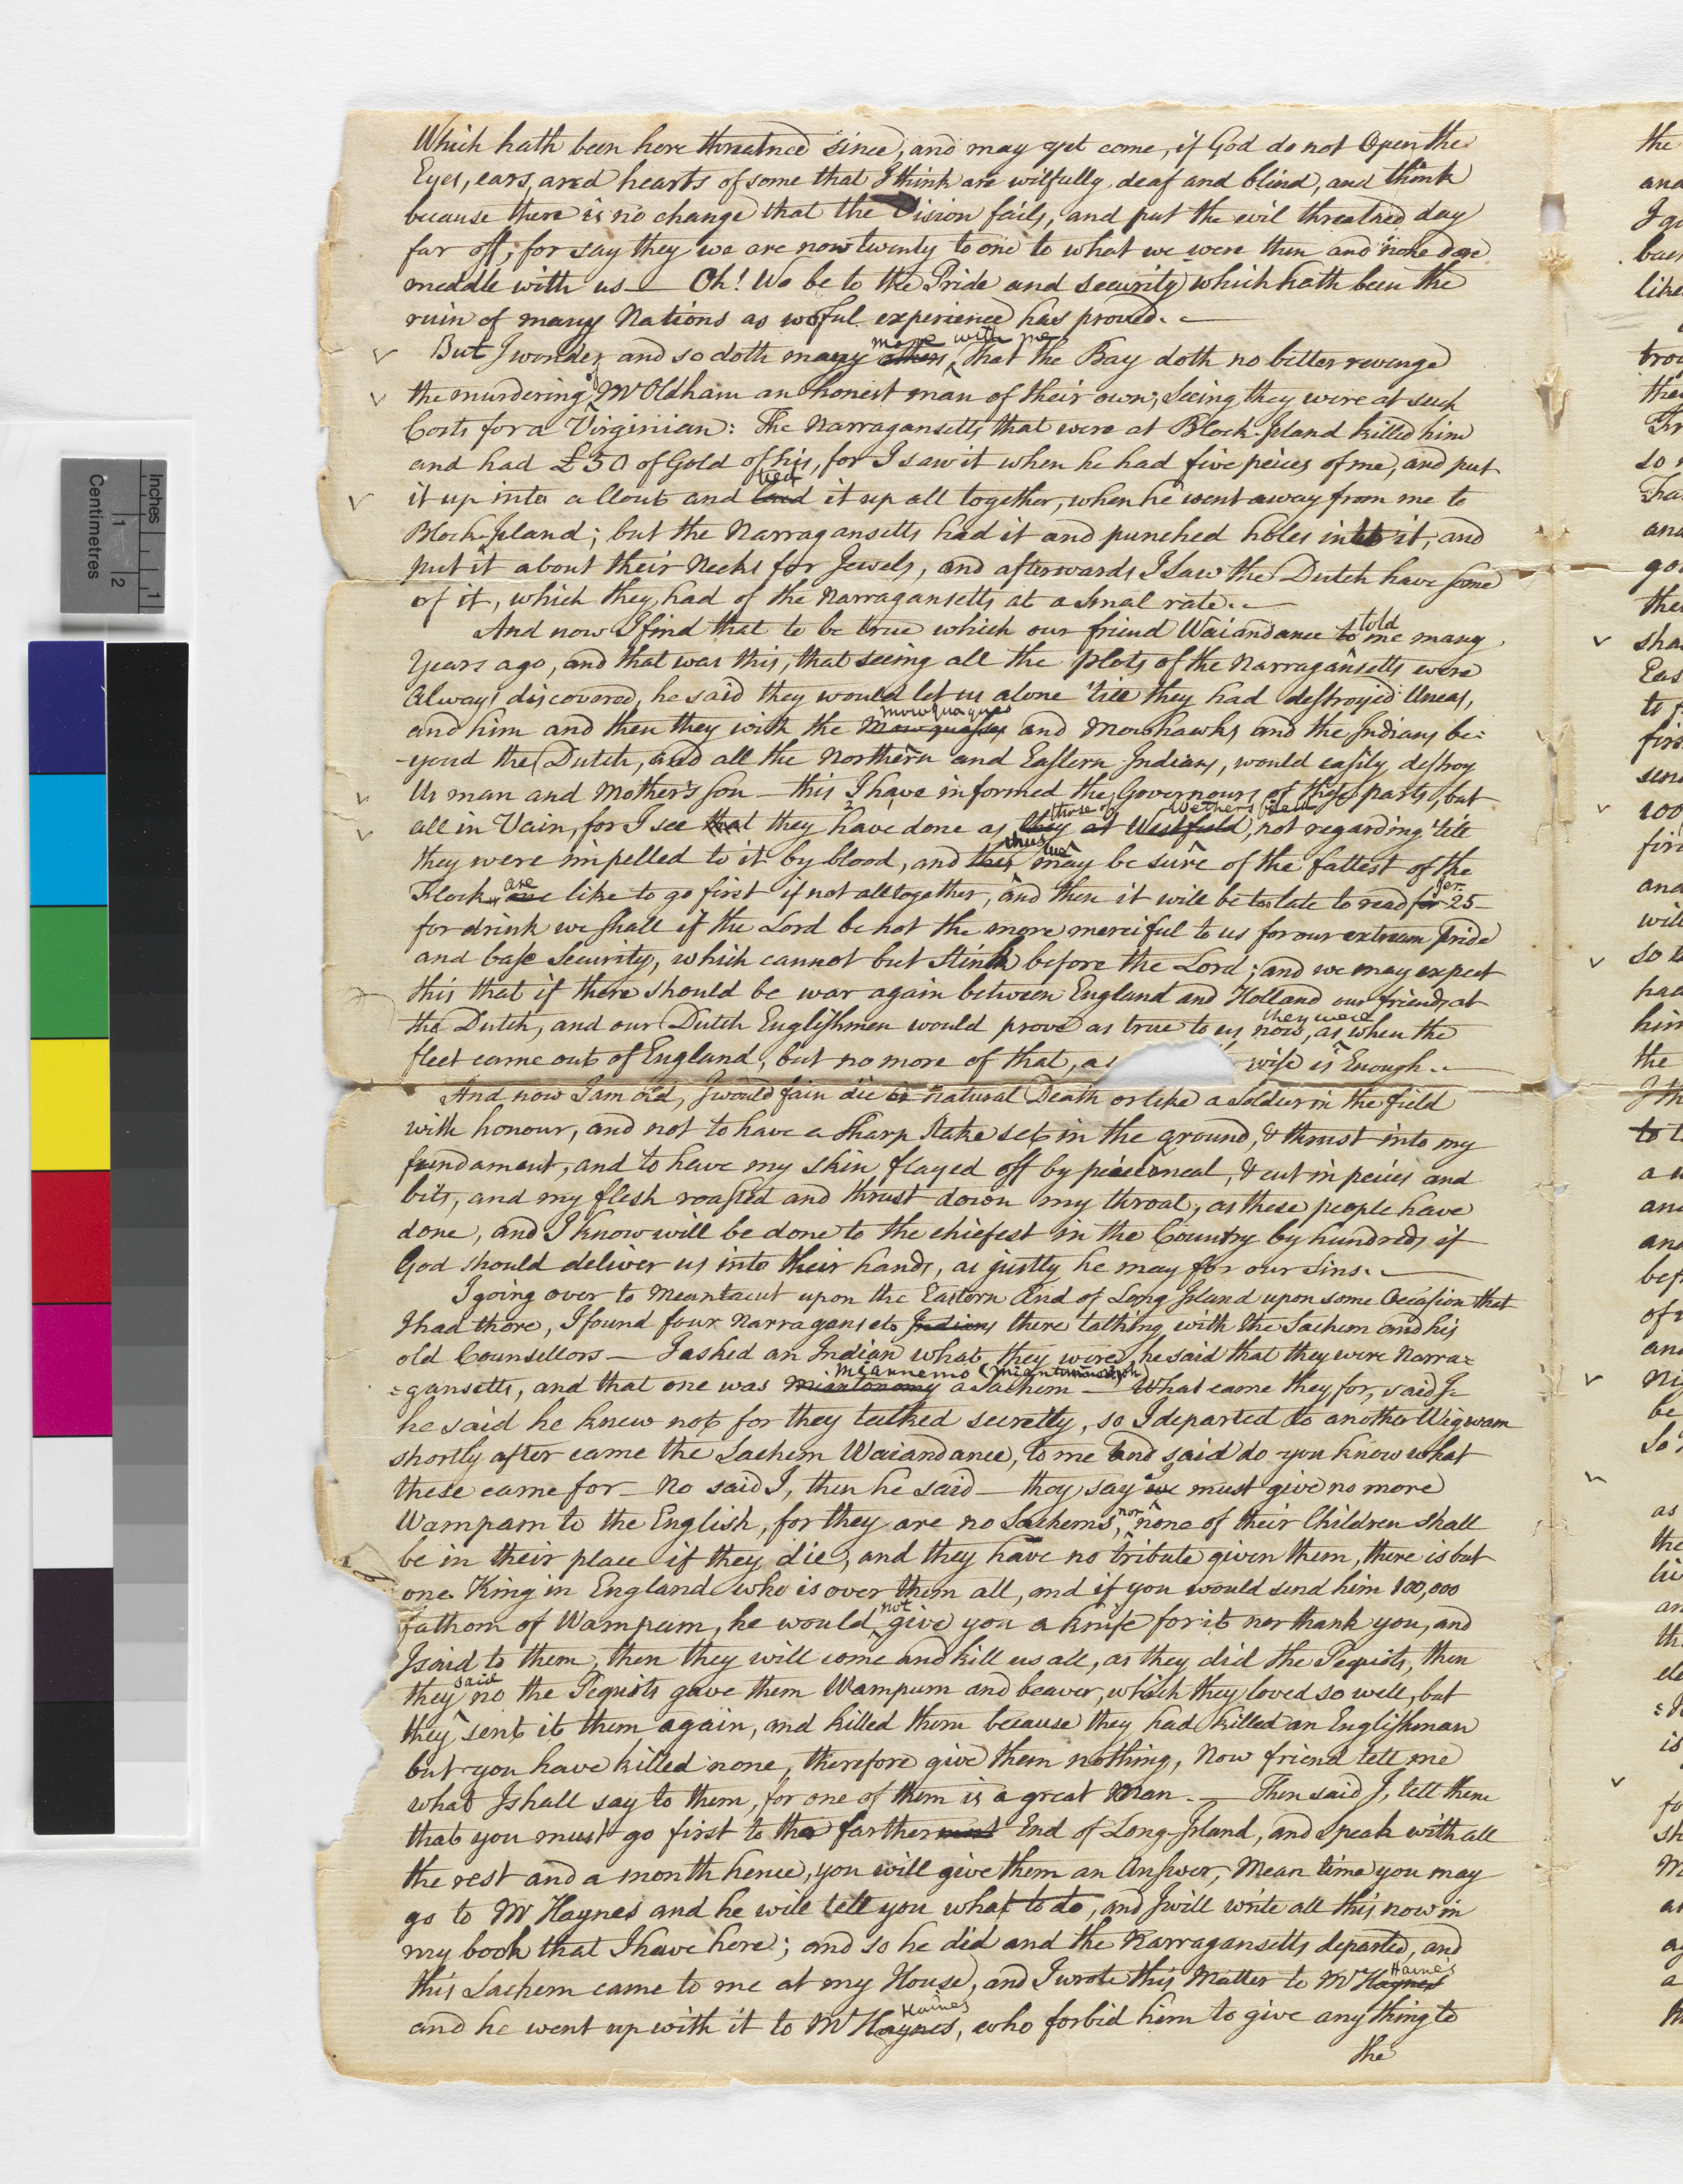 Which hath been here threatned since, and may yet come, if God do not Open the
Eyes, ears, and hearts of some that I think are wilfully deaf and blind, and think
because there is no change that the Vision fails, and put the evil threatned day
far off; for say they we are now twenty to one to what we were then and none dare
meddle with us — Oh! Wo be to the Pride and security which hath been the
ruin of many Nations as woful experience has proved. —
more with me
But I wonder, and so doth many others that the Bay doth no better revenge
of
the murdering Mr Oldham an honest man of their own, Seeing they were at such
Costs for a Virginian: The Narragansetts that were at Block-Island killed him
and had £50 of Gold of his, for I saw it when he had five peices of me, and put
tied
it up into a clout and it up all together, when he went away from me to
Block-Island; but the Narragansetts had it and punched holes into it, and
put it about their Necks for Jewels, and afterwards I Saw the Dutch have some
of it, which they had of the Narragansetts at a Smal rate. —
told
And now I find that to be true which our friend Waiandance to me many
Years ago, and that was this, that seeing all the plots of the Narragansetts were
Always discovered, he said they would let us alone 'till they had destroyed Uncas,
mowquaques
and him and then they with the and Mowhawks and the Indians be=
-yond the Dutch, and all the Northern and Eastern Indians, would easily destroy
Us man and Mother's Son — this I have informed the Governours of these parts, but
those of Wethersfield
all in Vain, for I see that they have done as they at Westfield, not regarding 'till
thus we
they were impelled to it by blood, and this may be sure of the fattest of the
are Jer.
Flock are like to go first if not alltogether, and then it will be too late to read for 25 —
for drink we shall if the Lord be not the more merciful to us for our extream pride
and base Security, which cannot but Stink before the Lord; and we may expect
this that if there should be war again between England and Holland our friends at
they were
the Dutch, and our Dutch Englishmen would prove as true to us now, as when the
fleet came out of England, but no more of that, a wise is Enough. —
And now I am old, I would fain die a natural Death or like a Soldier in the field
with honour, and not to have a Sharp Stake set in the ground, & thrust into my
fundament, and to have my skin flayed off by peicemeal, & cut in peices and
bits, and my flesh roasted and thrust down my throat, as these people have
done, and I know will be done to the chiefest in the Country by hundreds if
God should deliver us into their hands, as justly he may for our Sins. —
I going over to Meantacut upon the Eastern End of Long Island upon some Occasion that
I had there, I found four Narragansets Indians there talking with the Sachem and his
old Counsellors — I asked an Indian what they were, he said that they were Narra=
Miannemo
=gansetts, and that one was Miantonomy a Sachem — What came they for, said I
he said he knew not for they talked secretly, so I departed to another Wigwam
shortly after came the Sachem Waiandance, to me and said do you know what
these came for — No said I, then he said — they say we must give no more
nor
Wampam to the English, for they are no Sachems, none of their Children shall
be in their place if they die, and they have no tribute given them, there is but
one King in England who is over them all, and if you would send him 100,000
not
fathom of Wampum, he would give you a knife for it nor thank you, and
I said to them, then they will come and kill us all, as they did the Pequots, then
said
they no the Pequots gave them Wampum and beaver, which they loved so well, but
they sent it them again, and killed them because they had killed an Englishman
but you have killed none, therefore give them nothing, Now friend tell me
what I shall say to them, for one of them is a great Man. — Then said I, tell them
that you must go first to the farthermost End of Long-Island, and speak with all
the rest and a month hence, you will give them an Answer, Mean time you may
go to Mr Haynes and he will tell you what to do, and I will write all this now in
my book that I have here; and so he did and the Narragansetts departed, and
Haines
this Sachem came to me at my House, and I wrote this Matter to Mr Haynes
Haines
and he went up with it to Mr Haynes, who forbid him to give any thing to
the